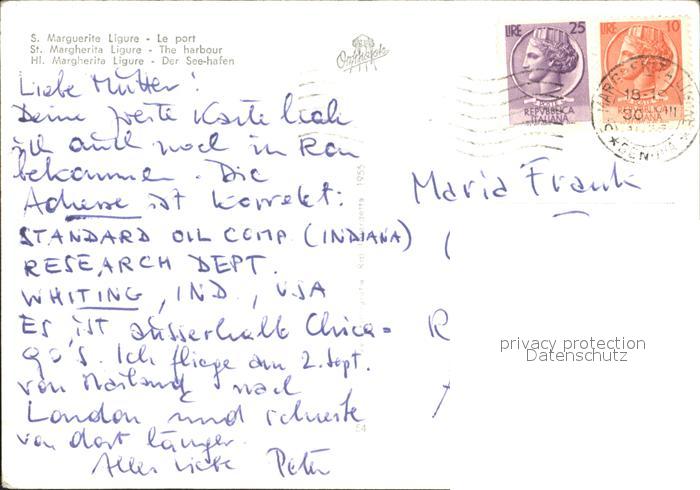 S. Marguerite Ligure - Le port
St. Margherita Ligure - The harbour
Hl. Margherita Ligure - Der See-hafen
Liebe Mutter!
Deine zweite Karte hab
ich auch noch in Rom
bekommen. Die
Adresse ist korrekt:
STANDARD OIL COMP (INDIANA)
RESEARCH DEPT.
WHITING, IND., USA
Es ist ausserhalb Chica-
go's. Ich fliege am 2. Sept.
von Mailand nach
London und schreibe
von dort länger.
Alles Liebe Peter
LIRE 25
REPUBBLICA
ITALIANA
LIRE 10
REPUBBLICA
ITALIANA
18-19
30 VIII
GENOVA
Maria Frank
R
privacy protection
Datenschutz
1955
54